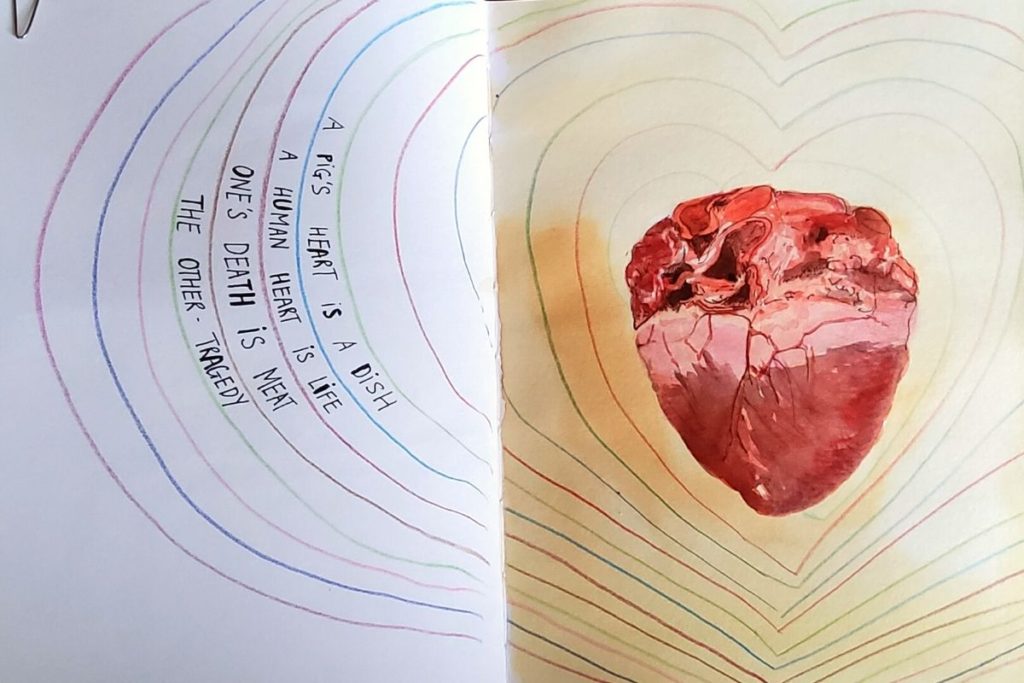 A PiG'S HEART iS A DiSH
A HUMAN HEART iS LiFE
ONE'S DEATH iS MEAT
THE OTHER - TRAGEDY